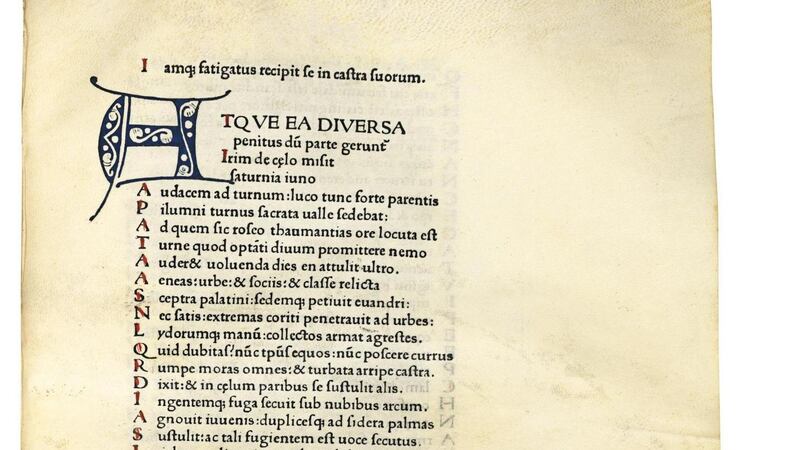 I amq; fatigatus recipit se in castra suorum.
ATQVE EA DIVERSA
penitus dū parte gerunt᷑
Irim de cęlo misit
saturnia iuno
A udacem ad turnum: luco tunc forte parentis
P ilumni turnus sacrata ualle sedebat:
A d quem sic roseo thaumantias ore locuta est
T urne quod optāti diuum promittere nemo
A uder& uoluenda dies en attulit ultro.
A eneas: urbe: & sociis: & classe relicta
S ceptra palatini: sedemq; petiuit euandri:
N ec satis: extremas coriti penetrauit ad urbes:
L ydorumq; manū: collectos armat agrestes.
Q uid dubitas? nūc tp̄us equos: nūc poscere currus
R umpe moras omnes: & turbata arripe castra.
D ixit: & in cęlum paribus se sustulit alis.
I ngentemq; fuga secuit sub nubibus arcum.
A gnouit iuuenis: duplicesq; ad sidera palmas
S ustulit: ac tali fugientem est uoce secutus.